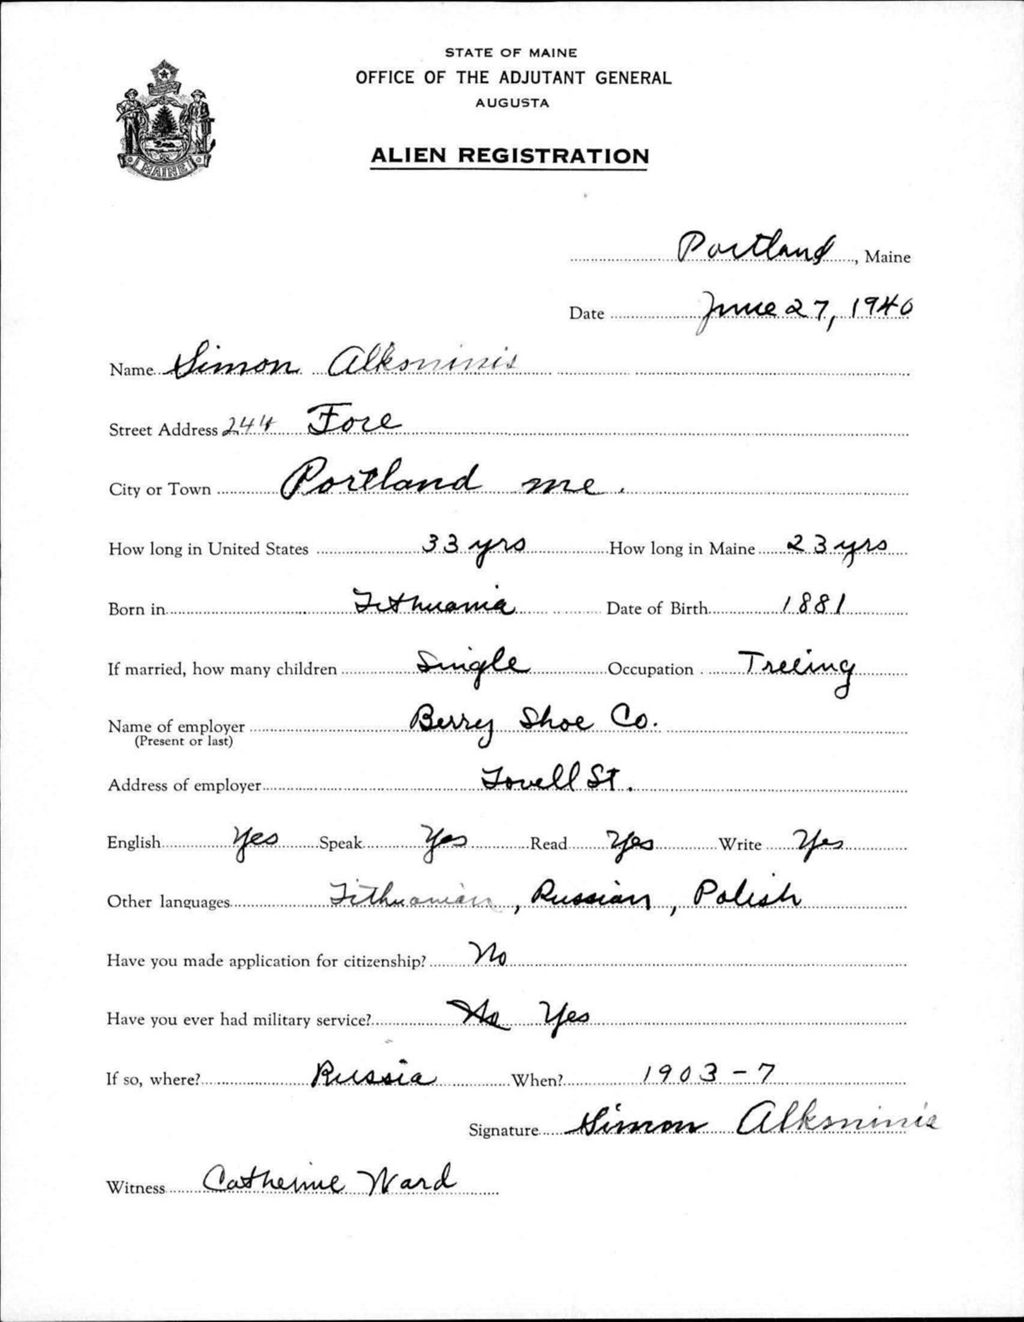 STATE OF MAINE
OFFICE OF THE ADJUTANT GENERAL
AUGUSTA
ALIEN REGISTRATION
MAINE
Portland, Maine
Date June 27, 1940
Name Simon Alksninis
Street Address 244 Fore
City or Town Portland me.
How long in United States 33 yrs How long in Maine 23 yrs
Born in Lithuania Date of Birth 1881
If married, how many children Single Occupation Treeing
Name of employer Berry Shoe Co.
(Present or last)
Address of employer Lovell St.
English Yes Speak Yes Read Yes Write Yes
Other languages Lithuanian, Russian, Polish
Have you made application for citizenship? No
Have you ever had military service? No Yes
If so, where? Russia When? 1903-7
Signature Simon Alksninis
Witness Catherine Ward